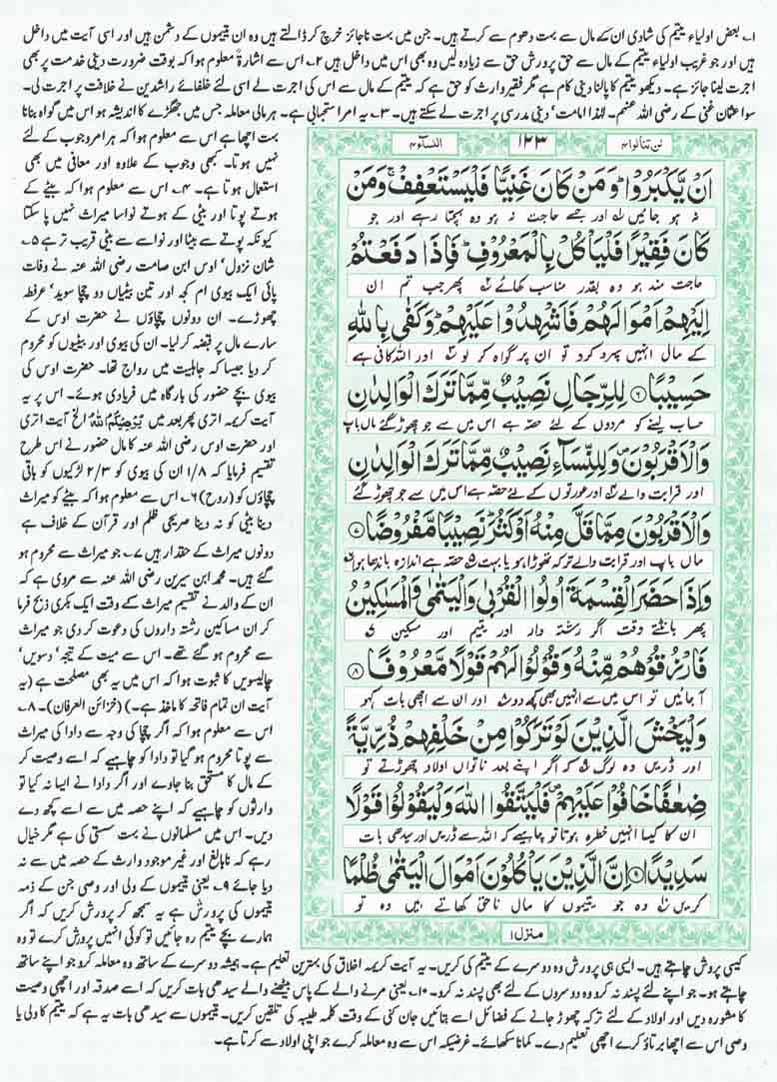 ۱۔ بعض اولیاء یتیم کی شادی ان کے مال سے بہت دھوم سے کرتے ہیں۔ جن میں بہت ناجائز خرچ کر ڈالتے ہیں وہ ان یتیموں کے دشمن ہیں اور اسی آیت میں داخل
ہیں اور جو غریب اولیاء یتیم کے مال سے حق پرورش حق سے زیادہ لیں وہ بھی اس میں داخل ہیں ۲۔ اس سے اشارۃً معلوم ہوا کہ بوقت ضرورت دینی خدمت پر بھی
اجرت لینا جائز ہے۔ دیکھو یتیم کا پالنا دینی کام ہے مگر فقیر وارث کو حق ہے کہ یتیم کے مال سے اس کی اجرت لے اسی لئے خلفائے راشدین نے خلافت پر اجرت لی۔
سوا عثمان غنی کے رضی اللہ عنہم۔ لہذا امامت، دینی مدرسی پر اجرت لے سکتے ہیں۔ ۳۔ یہ امر استحبابی ہے۔ ہر مالی معاملہ جس میں جھگڑے کا اندیشہ ہو اس میں گواہ بنانا
لن تنالوا ۴
۱۲۳
النسآء ۴
اَنْ يَّكْبَرُوْا ؕ وَمَنْ كَانَ غَنِيًّا فَلْيَسْتَعْفِفْ ۚ وَمَنْ
نہ ہو جائیں اور جسے حاجت نہ ہو وہ بچتا رہے اور جو
كَانَ فَقِيْرًا فَلْيَاْكُلْ بِالْمَعْرُوْفِ ؕ فَاِذَا دَفَعْتُمْ
حاجت مند ہو وہ بقدر مناسب کھائے پھر جب تم ان
اِلَيْهِمْ اَمْوَالَهُمْ فَاَشْهِدُوْا عَلَيْهِمْ ؕ وَكَفٰى بِاللّٰهِ
کے مال انہیں سپرد کرو تو ان پر گواہ کر لو اور اللہ کافی ہے
حَسِيْبًا ۶ لِلرِّجَالِ نَصِيْبٌ مِّمَّا تَرَكَ الْوَالِدٰنِ
حساب لینے کو مردوں کے لئے حصہ ہے اس میں سے جو چھوڑ گئے ماں باپ
وَالْاَقْرَبُوْنَ ۪ وَلِلنِّسَآءِ نَصِيْبٌ مِّمَّا تَرَكَ الْوَالِدٰنِ
اور قرابت والے اور عورتوں کے لئے حصہ ہے اس میں سے جو چھوڑ گئے
وَالْاَقْرَبُوْنَ مِمَّا قَلَّ مِنْهُ اَوْ كَثُرَ ؕ نَصِيْبًا مَّفْرُوْضًا ۷
ماں باپ اور قرابت والے ترکہ تھوڑا ہو یا بہت حصہ ہے اندازہ باندھا ہوا
وَاِذَا حَضَرَ الْقِسْمَةَ اُولُوا الْقُرْبٰى وَالْيَتٰمٰى وَالْمَسٰكِيْنُ
پھر بانٹتے وقت اگر رشتہ دار اور یتیم اور مسکین
فَارْزُقُوْهُمْ مِّنْهُ وَقُوْلُوْا لَهُمْ قَوْلًا مَّعْرُوْفًا ۸
آ جائیں تو اس میں سے انہیں بھی کچھ دو اور ان سے اچھی بات کہو
وَلْيَخْشَ الَّذِيْنَ لَوْ تَرَكُوْا مِنْ خَلْفِهِمْ ذُرِّيَّةً
اور ڈریں وہ لوگ کہ اگر اپنے بعد ناتواں اولاد چھوڑتے تو
ضِعٰفًا خَافُوْا عَلَيْهِمْ ۪ فَلْيَتَّقُوا اللّٰهَ وَلْيَقُوْلُوْا قَوْلًا
ان کا کیسا انہیں خطرہ ہوتا تو چاہیے کہ اللہ سے ڈریں اور سیدھی بات
سَدِيْدًا ۹ اِنَّ الَّذِيْنَ يَاْكُلُوْنَ اَمْوَالَ الْيَتٰمٰى ظُلْمًا
کریں وہ جو یتیموں کا مال ناحق کھاتے ہیں وہ تو
منزل ۱
بہت اچھا ہے اس سے معلوم ہوا کہ ہر امر وجوب کے لئے
نہیں ہوتا۔ کبھی وجوب کے علاوہ اور معانی میں بھی
استعمال ہوتا ہے۔ ۴۔ اس سے معلوم ہوا کہ بیٹے کے
ہوتے پوتا اور بیٹی کے ہوتے نواسا میراث نہیں پا سکتا
کیونکہ پوتے سے بیٹا اور نواسے سے بیٹی قریب تر ہے ۵۔
شان نزول، اوس ابن صامت رضی اللہ عنہ نے وفات
پائی ایک بیوی ام کجہ اور تین بیٹیاں دو چچا سوید، عرفطہ
چھوڑے۔ ان دونوں چچاؤں نے حضرت اوس کے
سارے مال پر قبضہ کر لیا۔ ان کی بیوی اور بیٹیوں کو محروم
کر دیا جیسا کہ جاہلیت میں رواج تھا۔ حضرت اوس کی
بیوی بچے حضور کی بارگاہ میں فریادی ہوئے۔ اس پر یہ
آیت کریمہ اتری پھر بعد میں یُوْصِیْکُمُ اللّٰہُ الخ آیت اتری
اور حضرت اوس رضی اللہ عنہ کا مال حضور نے اس طرح
تقسیم فرمایا کہ ۱/۸ ان کی بیوی کو ۲/۳ لڑکیوں کو باقی
چچاؤں کو (روح) ۶۔ اس سے معلوم ہوا کہ بیٹے کو میراث
دینا بیٹی کو نہ دینا صریحی ظلم اور قرآن کے خلاف ہے
دونوں میراث کے حقدار ہیں ۷۔ جو میراث سے محروم ہو
گئے ہیں۔ محمد ابن سیرین رضی اللہ عنہ سے مروی ہے کہ
ان کے والد نے تقسیم میراث کے وقت ایک بکری ذبح فرما
کر ان مساکین رشتہ داروں کی دعوت کر دی جو میراث
سے محروم ہو گئے تھے۔ اس سے میت کے تیجہ، دسویں،
چالیسویں کا ثبوت ہوا کہ اس میں یہ بھی مصلحت ہے (یہ
آیت ان تمام فاتحہ کا ماخذ ہے۔) (خزائن العرفان)۔ ۸۔
اس سے معلوم ہوا کہ اگر چچا کی وجہ سے دادا کی میراث
سے پوتا محروم ہو گیا تو دادا کو چاہیے کہ اسے وصیت کر
کے مال کا مستحق بنا جاوے اور اگر دادا نے ایسا نہ کیا تو
وارثوں کو چاہیے کہ اپنے حصہ میں سے اسے کچھ دے
دیں۔ اس میں مسلمانوں نے بہت سستی کی ہے مگر خیال
رہے کہ نابالغ اور غیر موجود وارث کے حصہ میں سے نہ
دیا جائے ۹۔ یعنی یتیموں کے ولی اور وصی جن کے ذمہ
یتیموں کی پرورش ہے یہ سمجھ کر پرورش کریں کہ اگر
ہمارے بچے یتیم رہ جائیں تو کوئی انہیں پرورش کرے تو وہ
کیسی پرورش چاہتے ہیں۔ ایسی ہی پرورش وہ دوسرے کے یتیم کی کریں۔ یہ آیت کریمہ اخلاق کی بہترین تعلیم ہے۔ ہمیشہ دوسرے کے ساتھ وہ معاملہ کرو جو اپنے ساتھ
چاہتے ہو۔ جو اپنے لئے پسند نہ کرو وہ دوسروں کے لئے بھی پسند نہ کرو۔ ۱۰۔ یعنی مرنے والے کے پاس بیٹھنے والے سیدھی بات کریں کہ اسے صدقہ اور اچھی وصیت
کا مشورہ دیں اور اولاد کے لئے ترکہ چھوڑ جانے کے فضائل اسے بتائیں جان کنی کے وقت کلمہ طیبہ کی تلقین کریں۔ یتیموں سے سیدھی بات یہ ہے کہ یتیم کا ولی یا
وصی اس سے اچھا برتاؤ کرے اچھی تعلیم دے۔ کمانا سکھائے۔ غرضیکہ اس سے وہ معاملہ کرے جو اپنی اولاد سے کرتا ہے۔